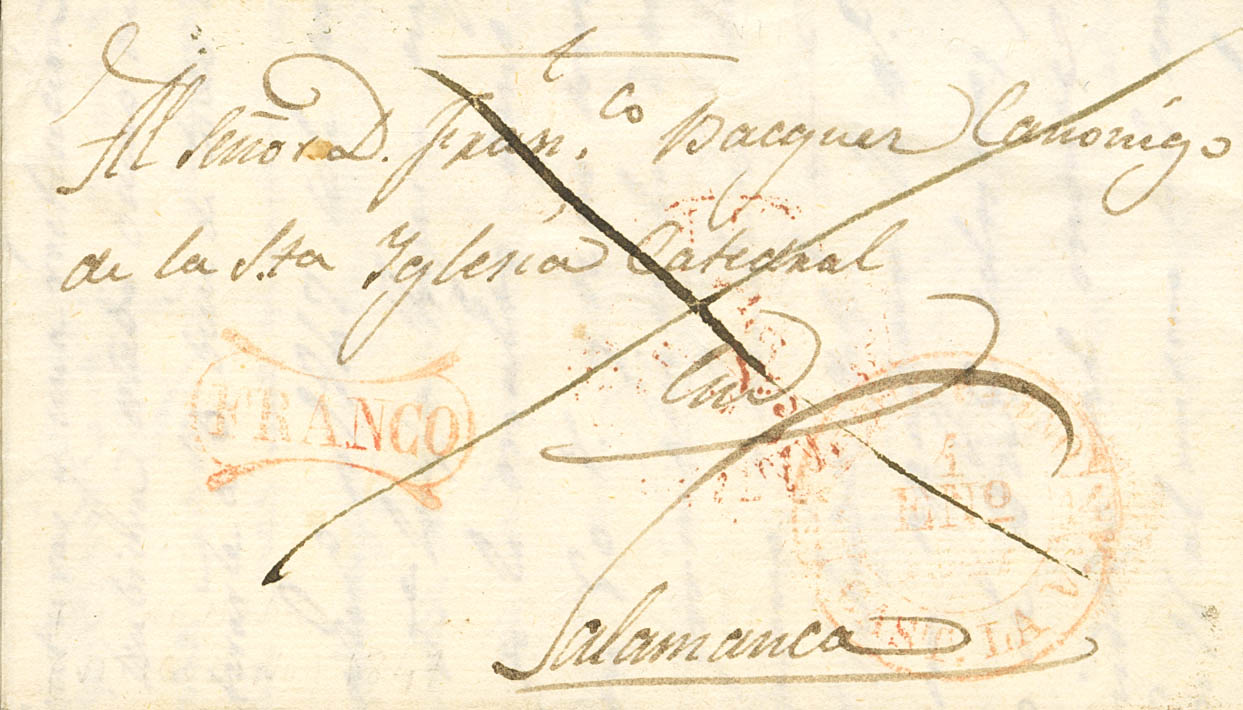 t
Al Señor D. Fran.co Pacquer Canonigo
de la Sta Yglesia Catedral
en
FRANCO
4
ENO
CAST. LA V.
Salamanca